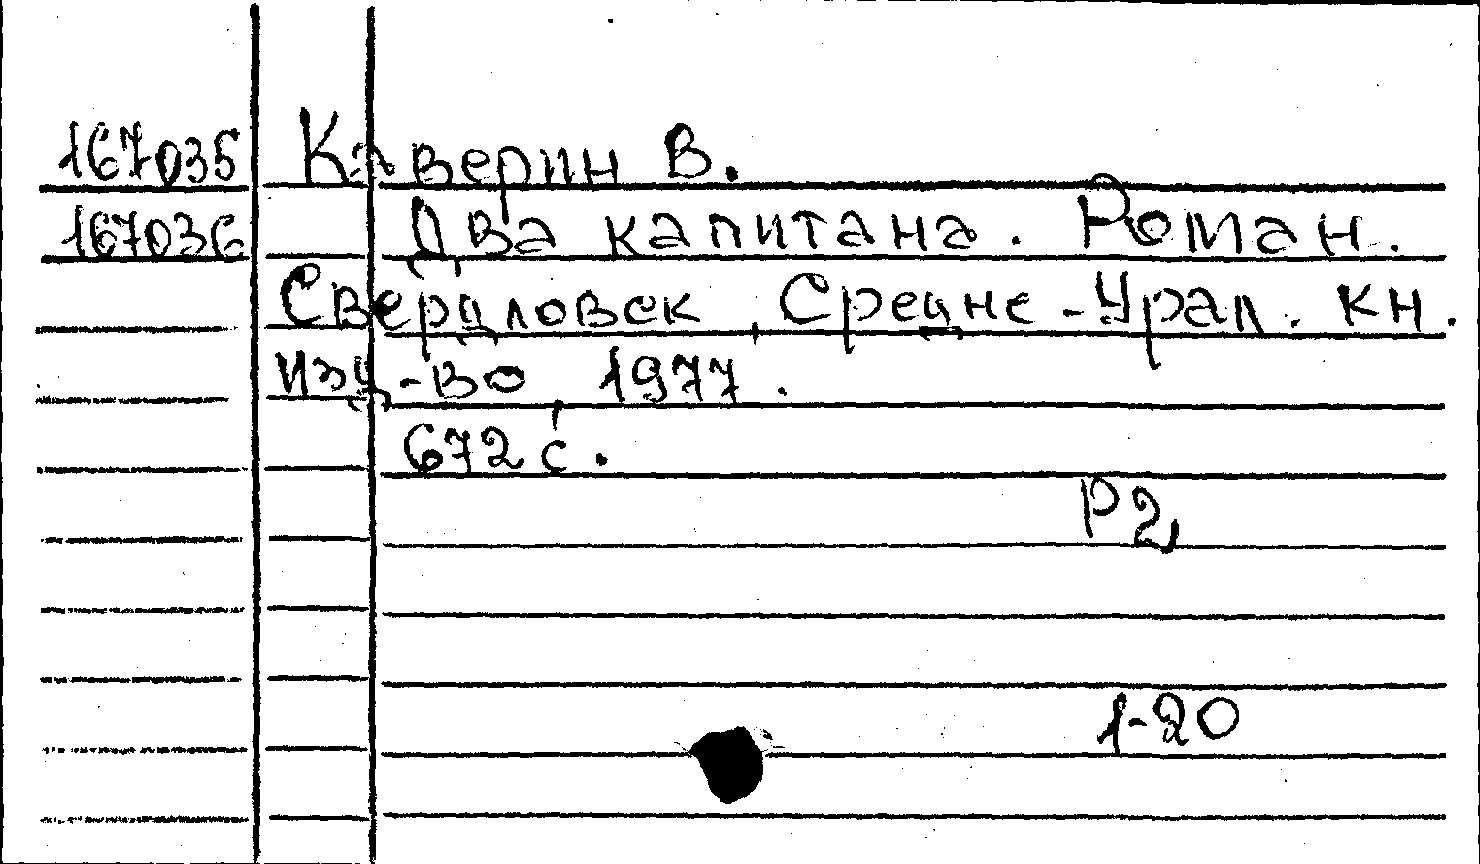 167035 Каверин В.
167036 Два капитана. Роман.
Свердловск, Средне-Урал. кн.
изд-во, 1977.
672 с.
Р2
1-20